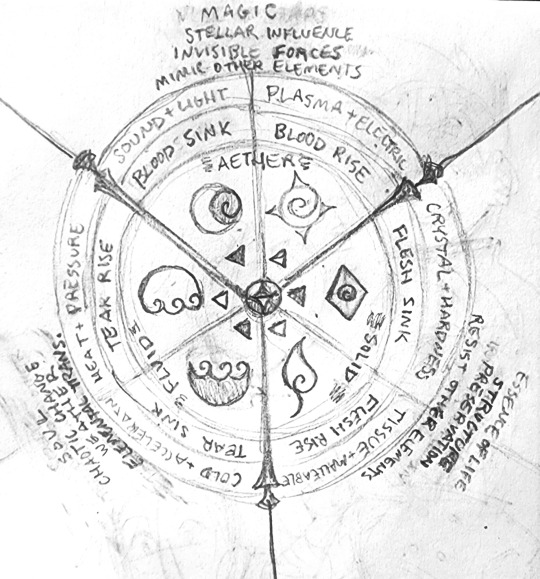 MAGIC
STELLAR INFLUENCE
INVISIBLE FORCES
MIMIC OTHER ELEMENTS
SOUND + LIGHT
PLASMA + ELECTRIC
BLOOD SINK
BLOOD RISE
AETHER
CRYSTAL + HARDNESS
FLESH SINK
SOLID
FLESH RISE
TISSUE + MALLEABLE
RESIST OTHER ELEMENTS
PRESERVATION
STRUCTURE
ESSENCE OF LIFE
HEAT + PRESSURE
TEAR RISE
FLUID
TEAR SINK
COLD +
SOUL
CHAOTIC CHANGE
WEATHER
ELEMENTAL TRANS.